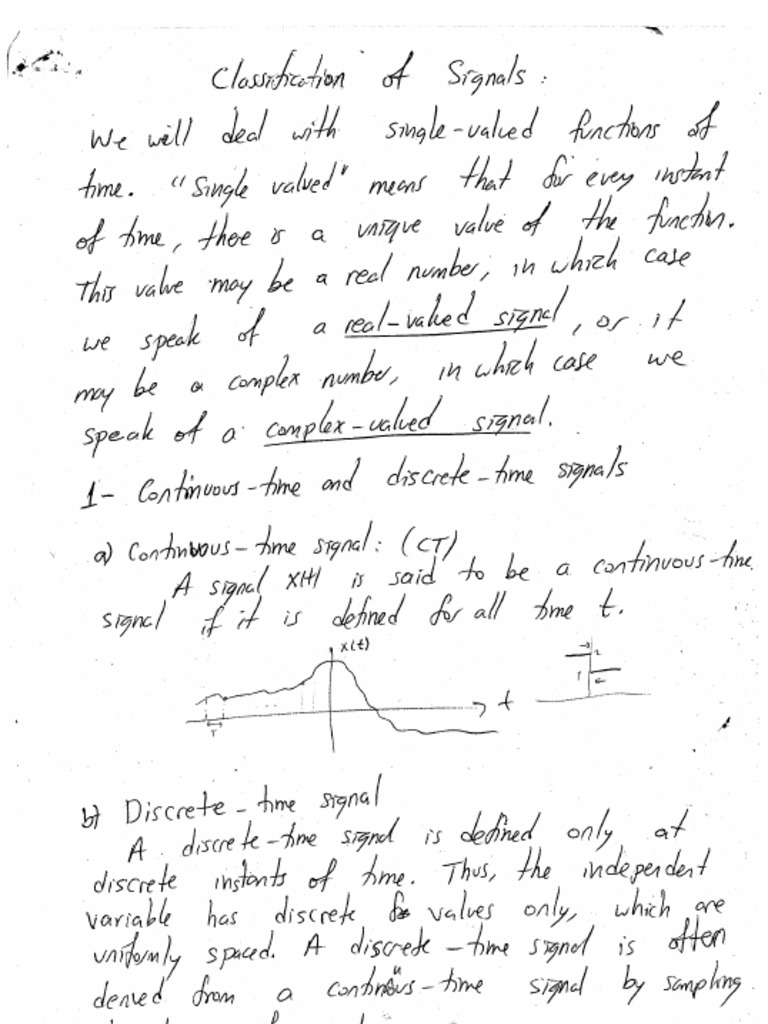 Classification of Signals :
We will deal with single-valued functions of
time. "Single valued" means that for every instant
of time, there is a unique value of the function.
This value may be a real number, in which case
we speak of a real-valued signal, or it
may be a complex number, in which case we
speak of a complex-valued signal.
1- Continuous-time and discrete-time signals
a) Continuous-time signal: (CT)
A signal x(t) is said to be a continuous-time
signal if it is defined for all time t.
x(t)
2
1
t
T
b) Discrete-time signal
A discrete-time signal is defined only at
discrete instants of time. Thus, the independent
variable has discrete values only, which are
uniformly spaced. A discrete-time signal is often
derived from a continuous-time signal by sampling